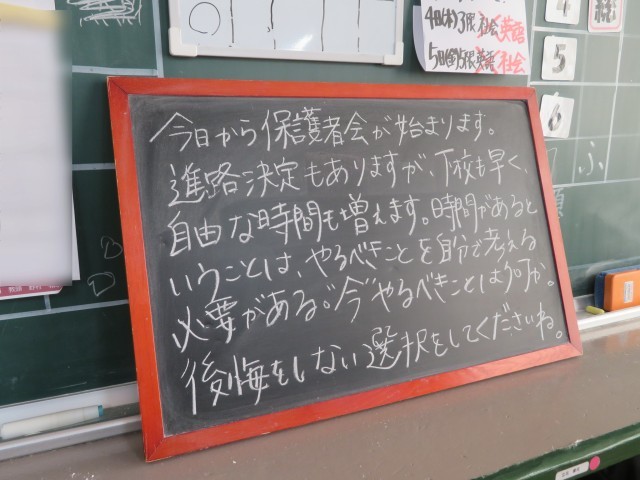 4日(木)3限 社会 英語
5日(金)5限 英語 社会
4
5
6
今日から保護者会が始まります。
進路決定もありますが、下校も早く、
自由な時間も増えます。時間があると
いうことは、やるべきことを自分で考える
必要がある。"今"やるべきことは何か。
後悔をしない選択をしてくださいね。